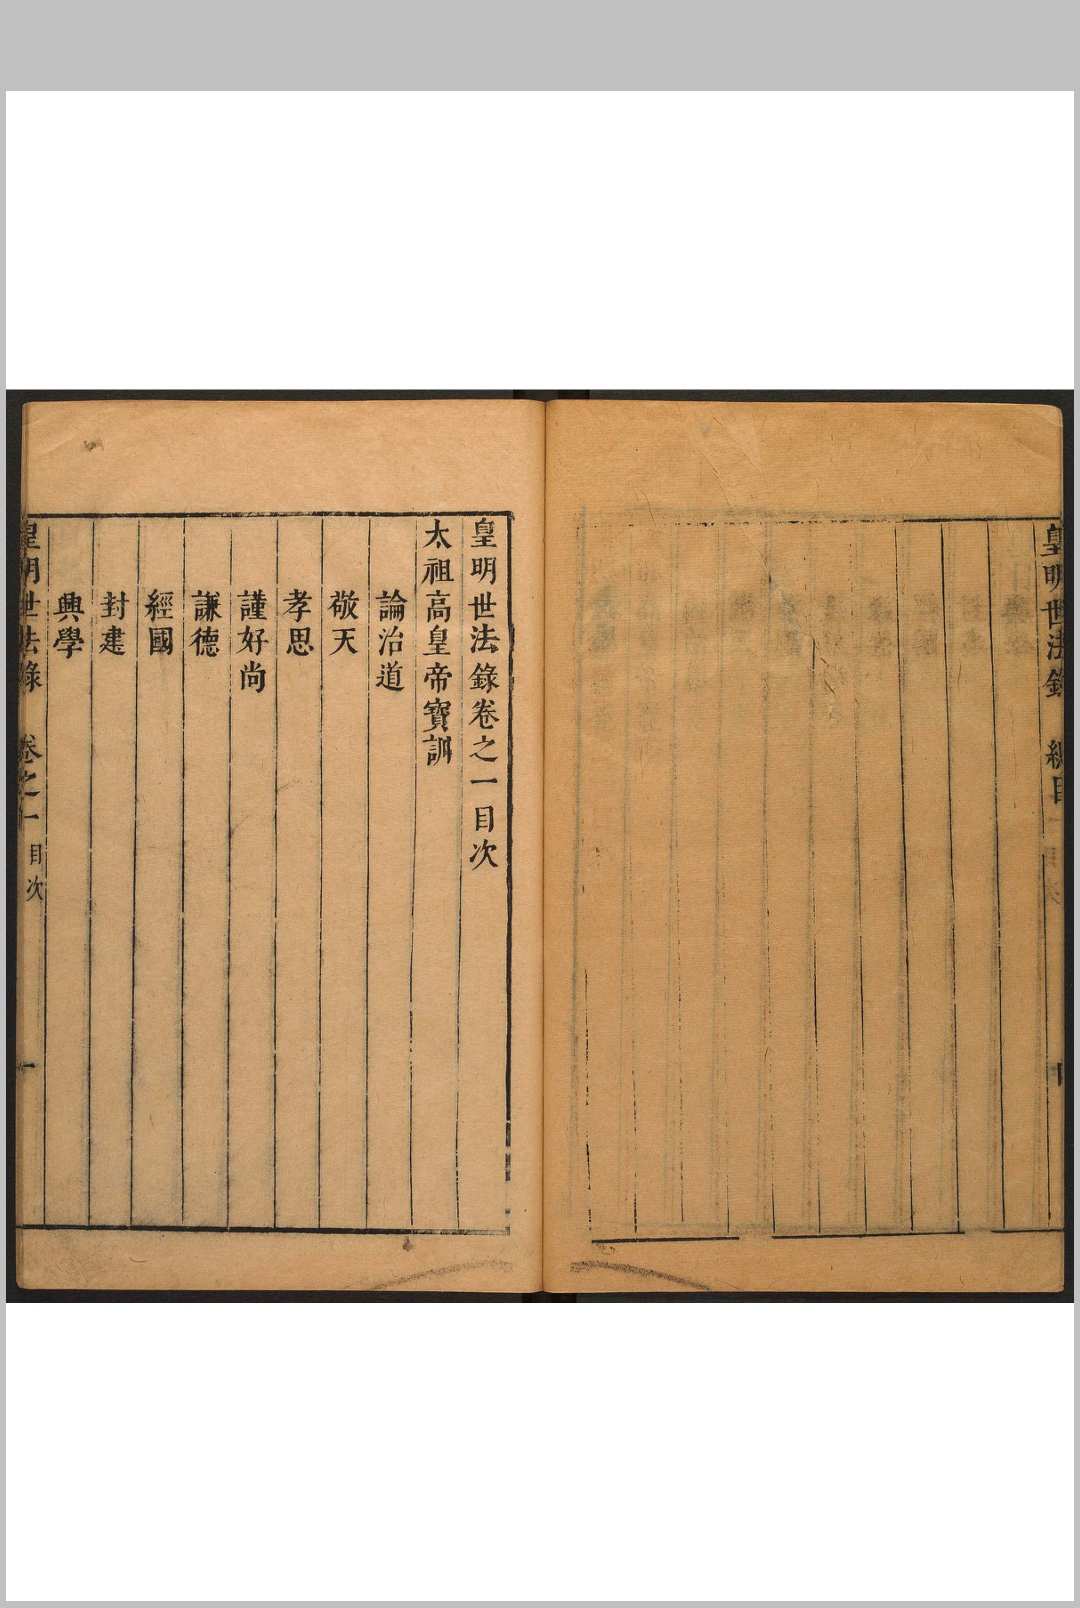 皇明世法錄
皇明世法錄卷之一目次
太祖高皇帝寶訓
論治道
敬天
孝思
謹好尚
謙德
經國
封建
興學
皇明世法錄 卷之一 目次 一